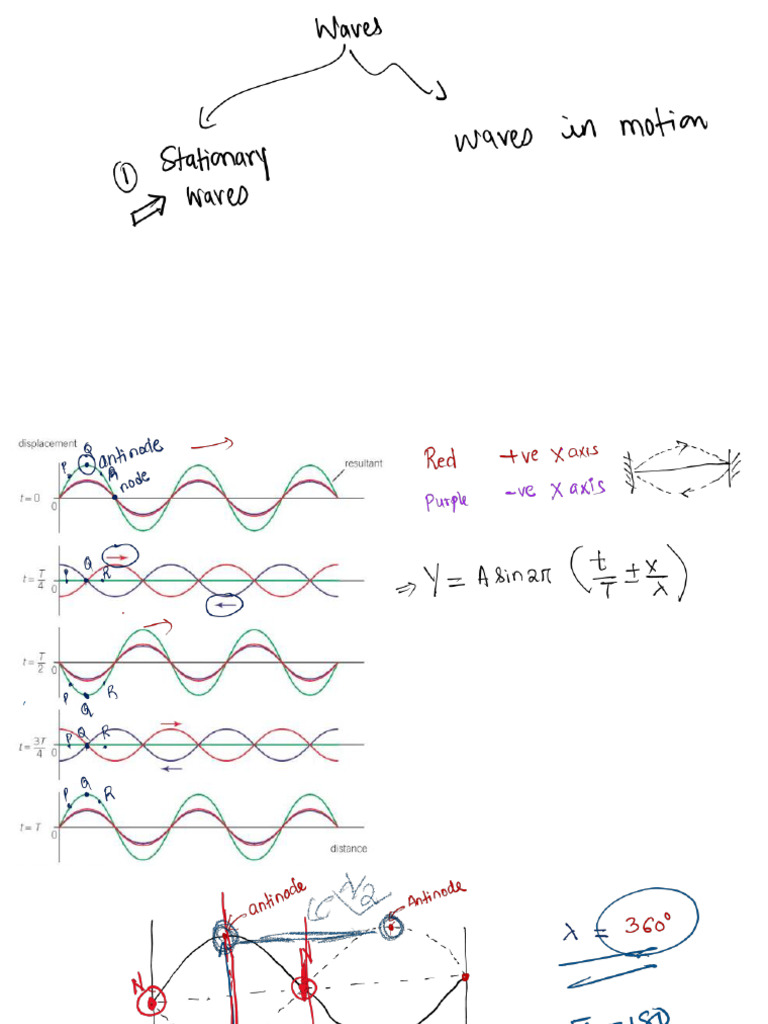 Waves
① Stationary waves
waves in motion
displacement
Q antinode
P R node
resultant
t=0
0
Red +ve X axis
Purple -ve X axis
Q
P R
t=T/4
0
⇒ Y = A sin 2π (t/T ± x/λ)
t=T/2
0
P R
Q
t=3T/4
0
P Q R
Q
P R
t=T
0
distance
antinode
λ/2
Antinode
N
N
λ = 360°